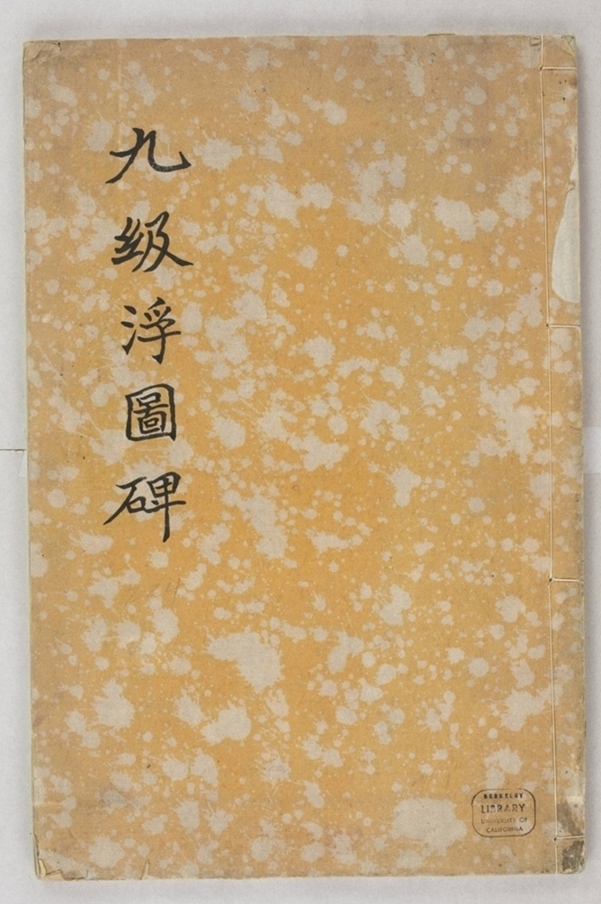 九级浮圖碑
BERKELEY
LIBRARY
UNIVERSITY OF
CALIFORNIA